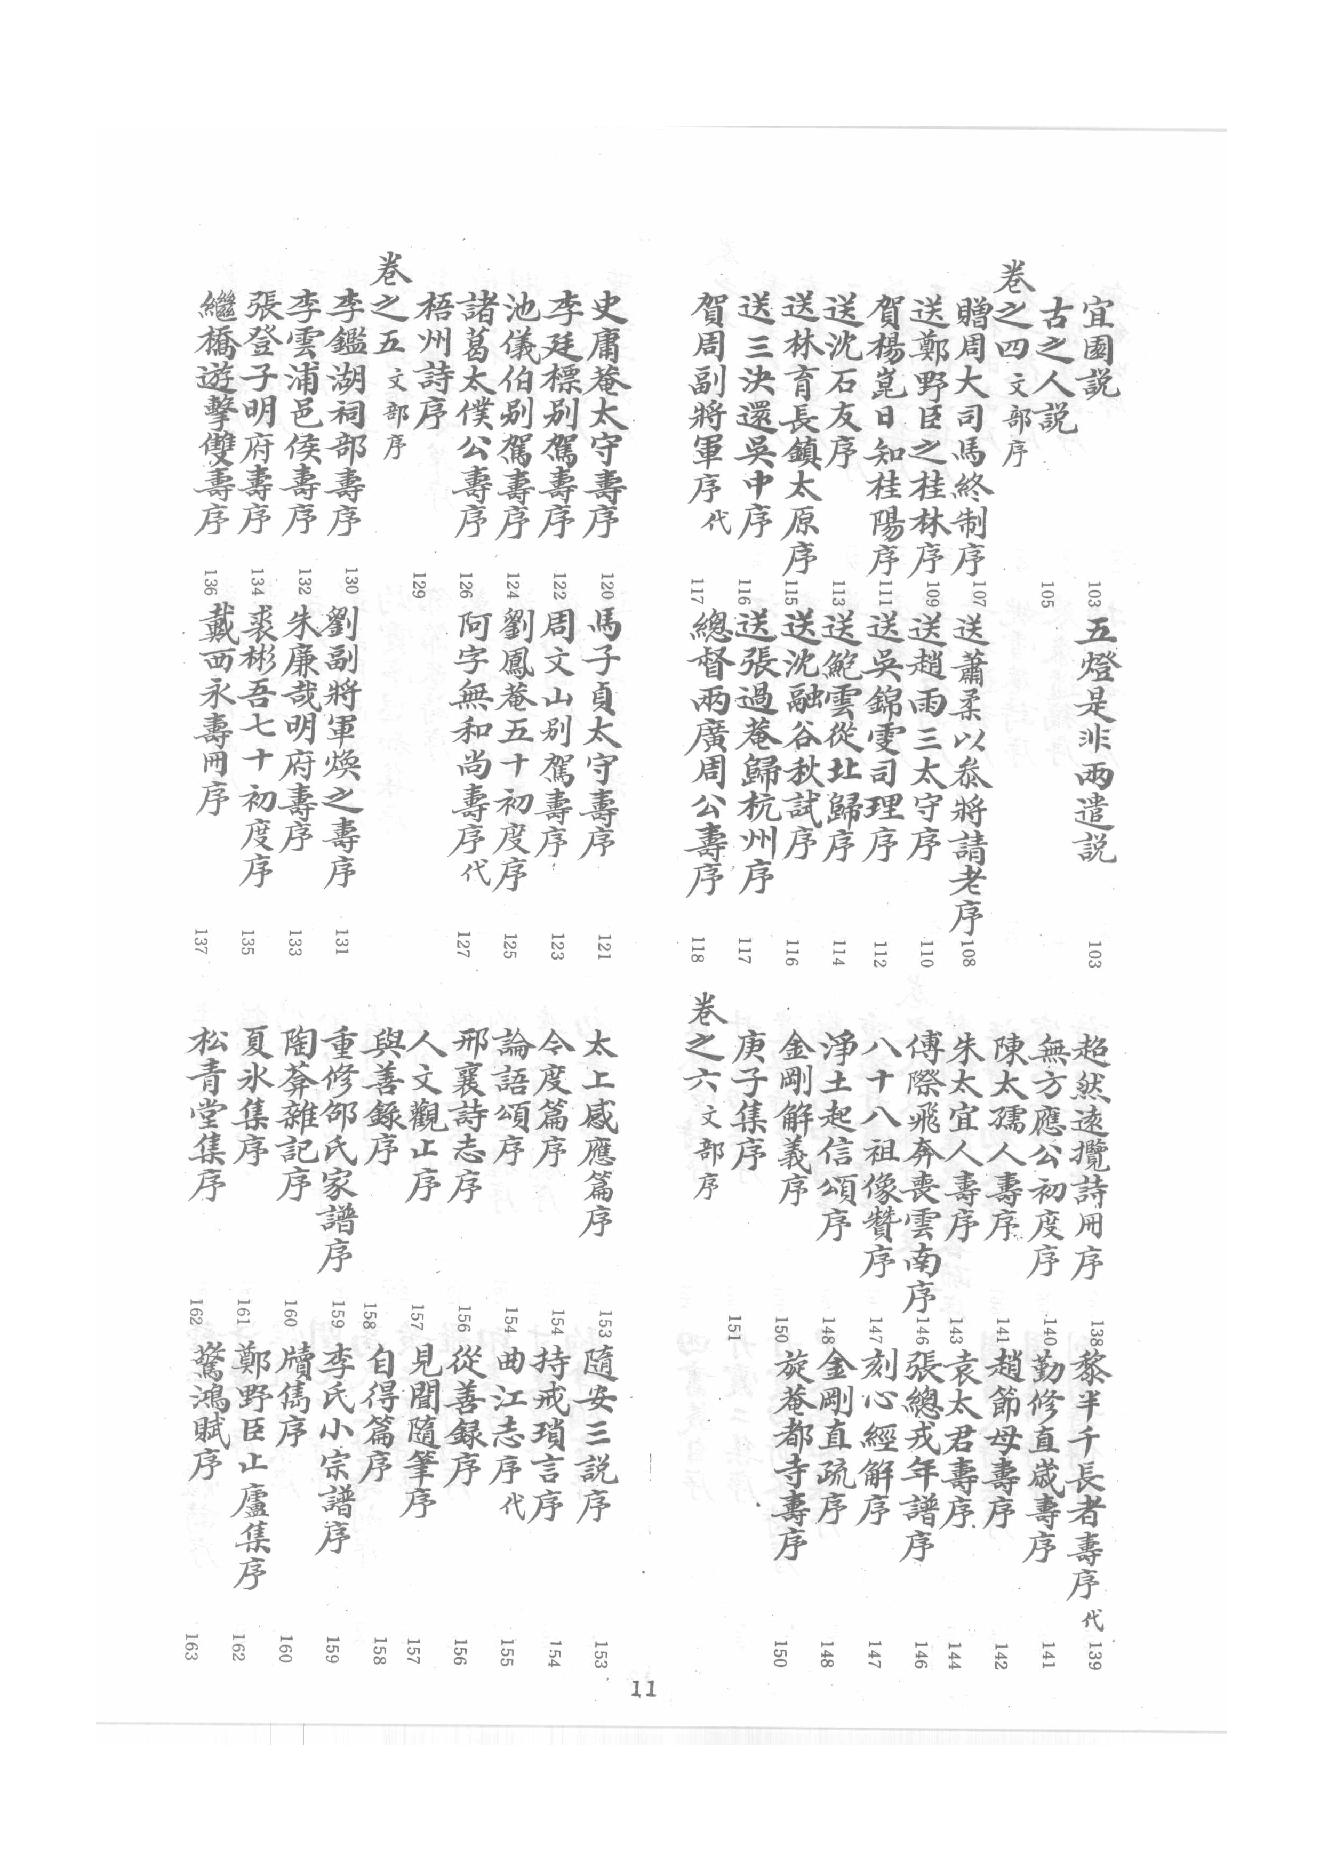 宜園説 103 五燈是非兩遣説 103
古之人説 105
卷之四 文部序
贈周大司馬終制序 107 送蕭柔以叅將請老序 108
送鄭野臣之桂林序 109 送趙雨三太守序 110
賀楊崑日知桂陽序 111 送吳錦雯司理序 112
送沈石友序 113 送鮑雲從北歸序 114
送林育長鎮太原序 115 送沈融谷秋試序 116
送三決還吳中序 116 送張過菴歸杭州序 117
賀周副將軍序 代 117 總督兩廣周公壽序 118
史庸菴太守壽序 120 馬子貞太守壽序 121
李廷標別駕壽序 122 周文山別駕壽序 123
池儀伯別駕壽序 124 劉鳳菴五十初度序 125
諸葛太僕公壽序 126 阿字無和尚壽序 代 127
梧州詩序 129
卷之五 文部序
李鑑湖祠部壽序 130 劉副將軍煥之壽序 131
李雲浦邑侯壽序 132 朱廉哉明府壽序 133
張登子明府壽序 134 裘彬吾七十初度序 135
繼橋遊擊雙壽序 136 戴西永壽冊序 137
超然遠攬詩冊序 138 黎半千長者壽序 代 139
無方應公初度序 140 勤修直歲壽序 141
陳太孺人壽序 141 趙節母壽序 142
朱太宜人壽序 143 袁太君壽序 144
傅際飛奔喪雲南序 146 張總戎年譜序 146
八十八祖像贊序 147 刻心經解序 147
淨土起信頌序 148 金剛直疏序 148
金剛解義序 150 旋菴都寺壽序 150
庚子集序 151
卷之六 文部序
太上感應篇序 153 隨安三説序 153
今度篇序 154 持戒瑣言序 154
論語頌序 154 曲江志序 代 155
邢襄詩志序 156 從善録序 156
人文觀止序 157 見聞隨筆序 157
與善錄序 158 自得篇序 158
重修邵氏家譜序 159 李氏小宗譜序 159
陶葊雜記序 160 牘雋序 160
夏氷集序 161 鄭野臣止廬集序 162
松青堂集序 162 驚鴻賦序 163
11